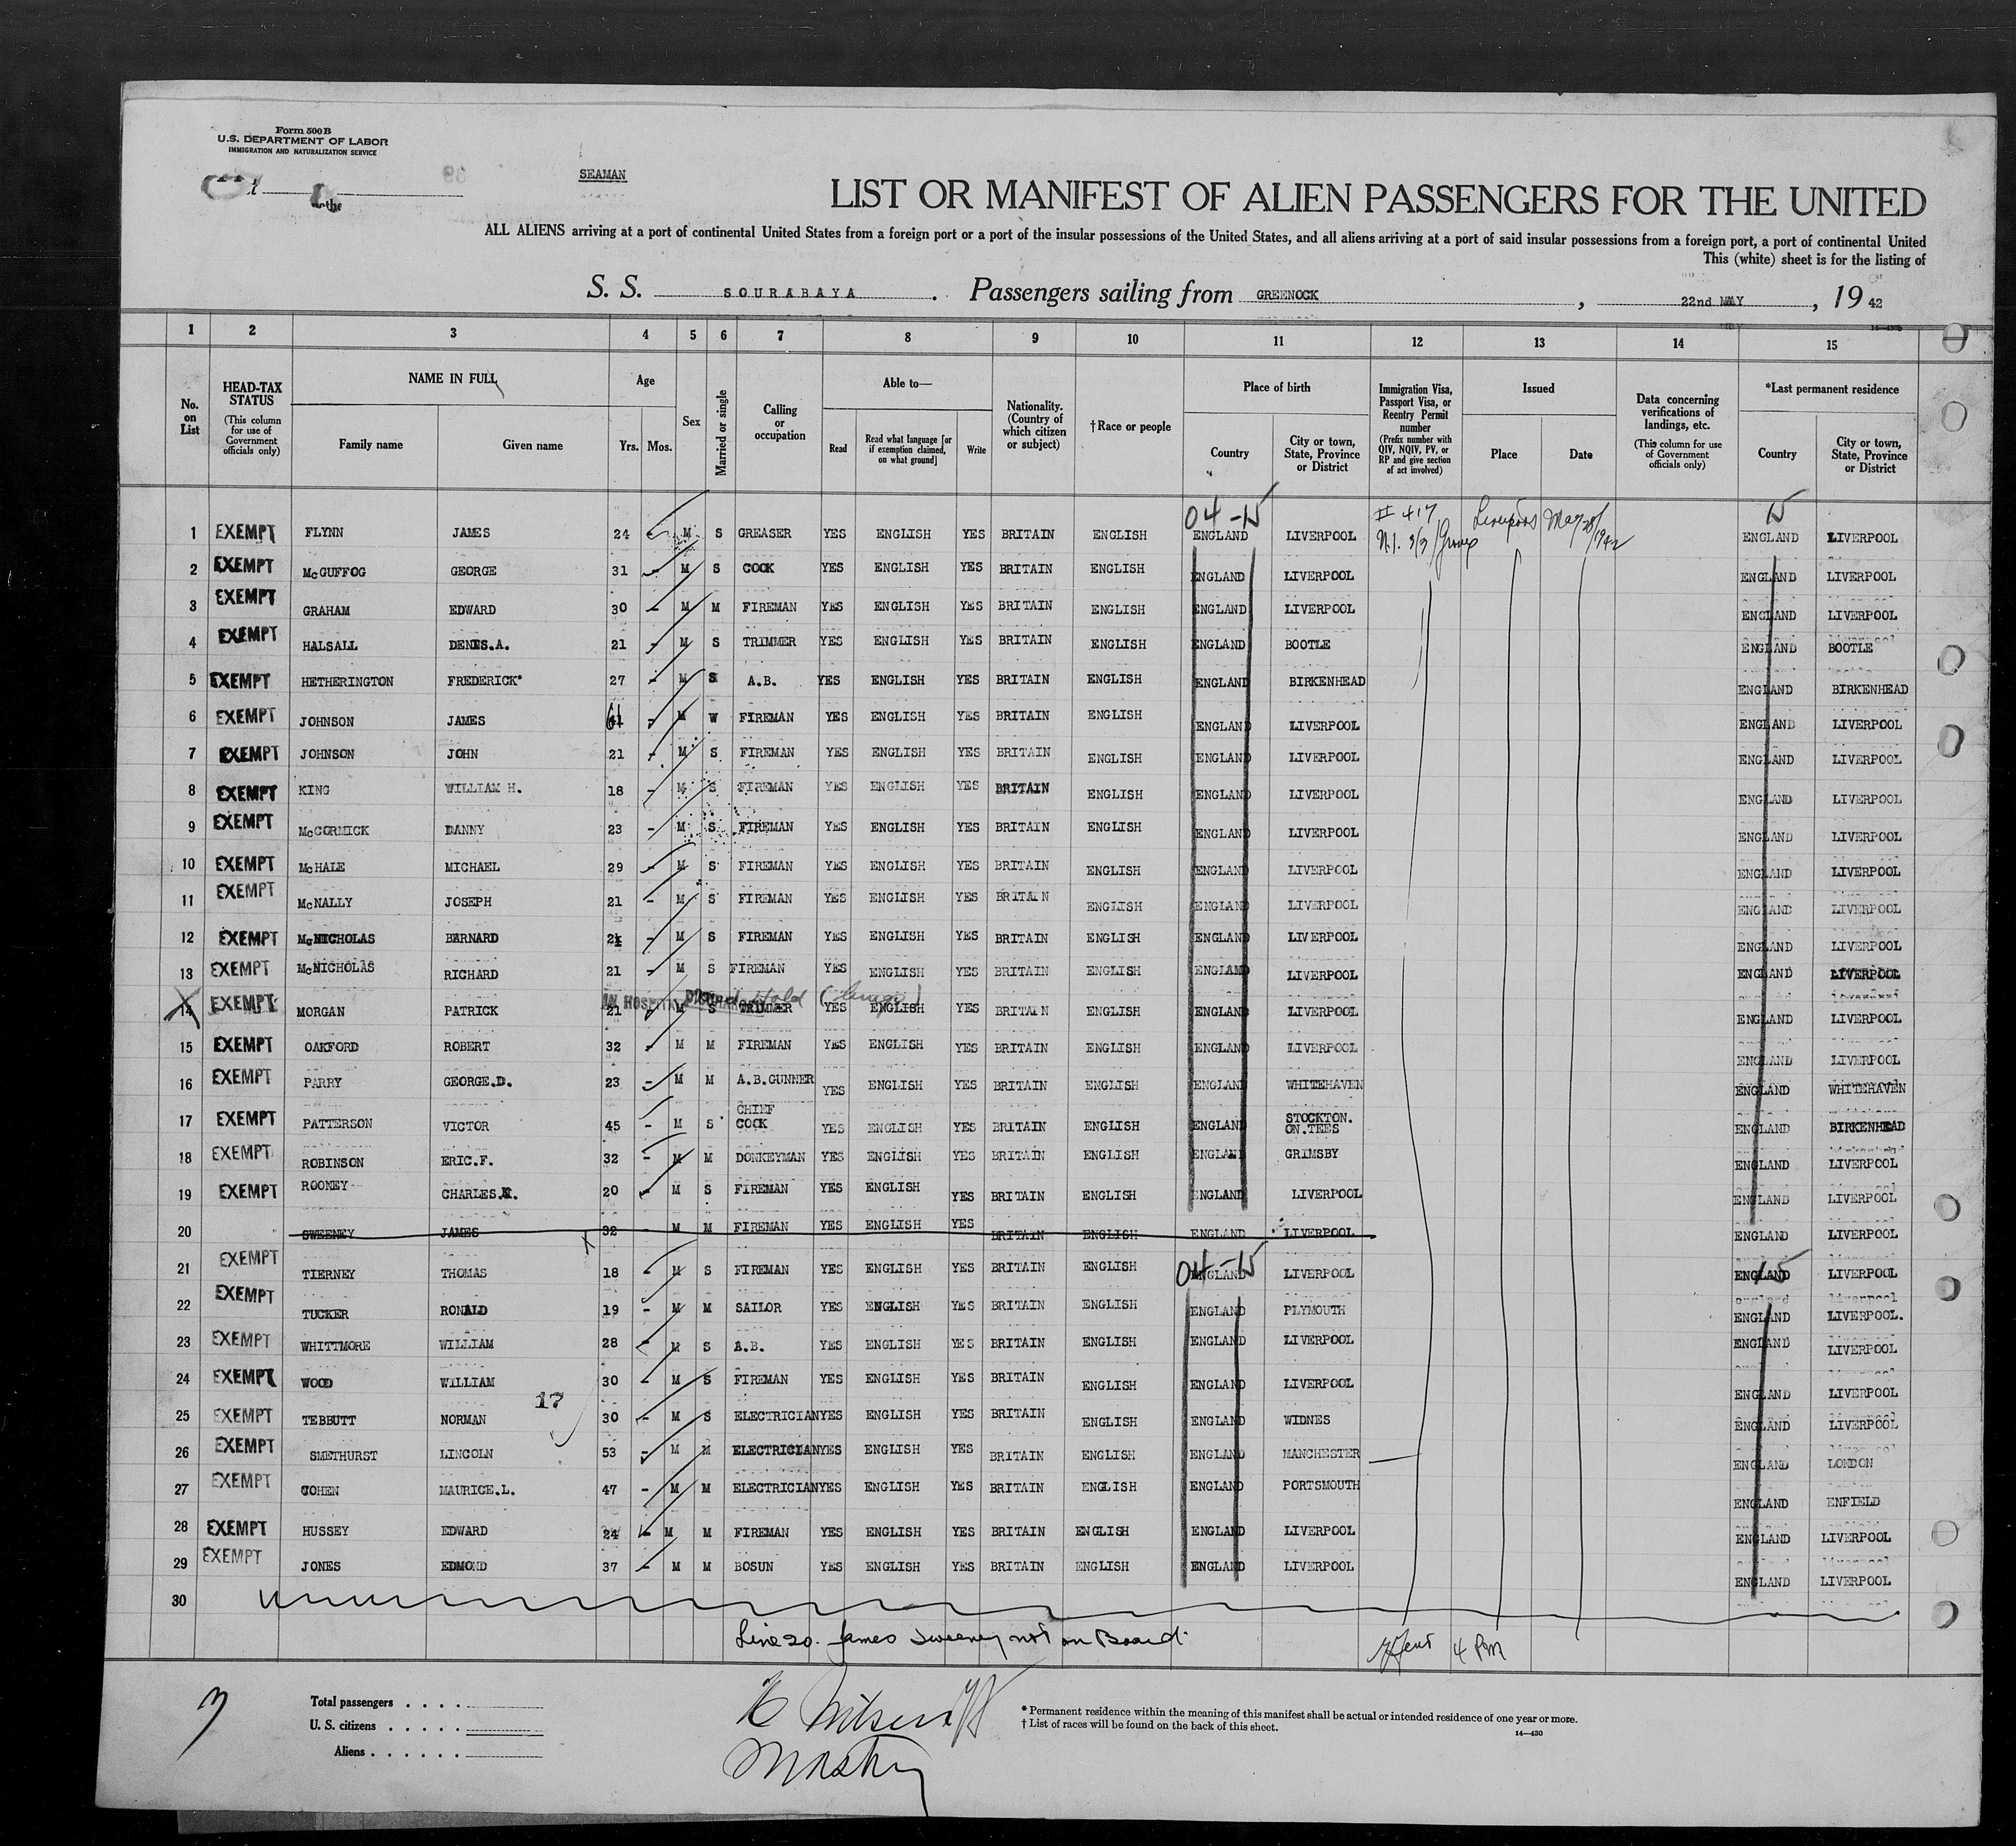 Form 500 B
U.S. DEPARTMENT OF LABOR
IMMIGRATION AND NATURALIZATION SERVICE
SEAMAN
LIST OR MANIFEST OF ALIEN PASSENGERS FOR THE UNITED
ALL ALIENS arriving at a port of continental United States from a foreign port or a port of the insular possessions of the United States, and all aliens arriving at a port of said insular possessions from a foreign port, a port of continental United
This (white) sheet is for the listing of
S. S. SOURABAYA. Passengers sailing from GREENOCK, 22nd MAY, 19 42
1 2 3 4 5 6 7 8 9 10 11 12 13 14 15
No. on List
HEAD-TAX STATUS (This column for use of Government officials only)
NAME IN FULL
Family name Given name
Age
Yrs. Mos.
Sex
Married or single
Calling or occupation
Able to—
Read Read what language [or if exemption claimed, on what ground] Write
Nationality. (Country of which citizen or subject)
†Race or people
Place of birth
Country City or town, State, Province or District
Immigration Visa, Passport Visa, or Reentry Permit number (Prefix number with QIV, NQIV, PV, or RP and give section of act involved)
Issued
Place Date
Data concerning verifications of landings, etc. (This column for use of Government officials only)
*Last permanent residence
Country City or town, State, Province or District
04 - 15 # 417 Liverpool May 28/1942 15
1 EXEMPT FLYNN JAMES 24 M S GREASER YES ENGLISH YES BRITAIN ENGLISH ENGLAND LIVERPOOL N.I. 3/3 ENGLAND LIVERPOOL
2 EXEMPT McGUFFOG GEORGE 31 - M S COOK YES ENGLISH YES BRITAIN ENGLISH ENGLAND LIVERPOOL ENGLAND LIVERPOOL
3 EXEMPT GRAHAM EDWARD 30 - M M FIREMAN YES ENGLISH YES BRITAIN ENGLISH ENGLAND LIVERPOOL ENGLAND LIVERPOOL
4 EXEMPT HALSALL DENIS.A. 21 - M S TRIMMER YES ENGLISH YES BRITAIN ENGLISH ENGLAND BOOTLE ENGLAND BOOTLE
5 EXEMPT HETHERINGTON FREDERICK 27 - M S A.B. YES ENGLISH YES BRITAIN ENGLISH ENGLAND BIRKENHEAD ENGLAND BIRKENHEAD
6 EXEMPT JOHNSON JAMES 61 - M W FIREMAN YES ENGLISH YES BRITAIN ENGLISH ENGLAND LIVERPOOL ENGLAND LIVERPOOL
7 EXEMPT JOHNSON JOHN 21 - M S FIREMAN YES ENGLISH YES BRITAIN ENGLISH ENGLAND LIVERPOOL ENGLAND LIVERPOOL
8 EXEMPT KING WILLIAM H. 18 - M S FIREMAN YES ENGLISH YES BRITAIN ENGLISH ENGLAND LIVERPOOL ENGLAND LIVERPOOL
9 EXEMPT McCORMICK DANNY 23 - M S FIREMAN YES ENGLISH YES BRITAIN ENGLISH ENGLAND LIVERPOOL ENGLAND LIVERPOOL
10 EXEMPT McHALE MICHAEL 29 - M S FIREMAN YES ENGLISH YES BRITAIN ENGLISH ENGLAND LIVERPOOL ENGLAND LIVERPOOL
11 EXEMPT McNALLY JOSEPH 21 - M S FIREMAN YES ENGLISH YES BRITAIN ENGLISH ENGLAND LIVERPOOL ENGLAND LIVERPOOL
12 EXEMPT McNICHOLAS BARNARD - M S FIREMAN YES ENGLISH YES BRITAIN ENGLISH ENGLAND LIVERPOOL ENGLAND LIVERPOOL
13 EXEMPT McNICHOLAS RICHARD 21 - M S FIREMAN YES ENGLISH YES BRITAIN ENGLISH ENGLAND LIVERPOOL ENGLAND LIVERPOOL
14 EXEMPT MORGAN PATRICK 21 M S TRIMMER YES ENGLISH YES BRITAIN ENGLISH ENGLAND LIVERPOOL ENGLAND LIVERPOOL
15 EXEMPT OAKFORD ROBERT 32 - M M FIREMAN YES ENGLISH YES BRITAIN ENGLISH ENGLAND LIVERPOOL ENGLAND LIVERPOOL
16 EXEMPT PARRY GEORGE.D. 23 - M M A.B.GUNNER YES ENGLISH YES BRITAIN ENGLISH ENGLAND WHITEHAVEN ENGLAND WHITEHAVEN
17 EXEMPT PATTERSON VICTOR 45 - M S CHIEF COOK YES ENGLISH YES BRITAIN ENGLISH ENGLAND STOCKTON. ON.TEES ENGLAND BIRKENHEAD
18 EXEMPT ROBINSON ERIC.F. 32 - M M DONKEYMAN YES ENGLISH YES BRITAIN ENGLISH ENGLAND GRIMSBY ENGLAND LIVERPOOL
19 EXEMPT ROONEY CHARLES 20 - M S FIREMAN YES ENGLISH YES BRITAIN ENGLISH ENGLAND LIVERPOOL ENGLAND LIVERPOOL
20 SWEENEY JAMES 32 - M M FIREMAN YES ENGLISH YES BRITAIN ENGLISH ENGLAND LIVERPOOL ENGLAND LIVERPOOL
04 - 15 15
21 EXEMPT TIERNEY THOMAS 18 - M S FIREMAN YES ENGLISH YES BRITAIN ENGLISH ENGLAND LIVERPOOL ENGLAND LIVERPOOL
22 EXEMPT TUCKER RONALD 19 - M M SAILOR YES ENGLISH YES BRITAIN ENGLISH ENGLAND PLYMOUTH ENGLAND LIVERPOOL.
23 EXEMPT WHITTMORE WILLIAM 28 - M S A.B. YES ENGLISH YES BRITAIN ENGLISH ENGLAND LIVERPOOL ENGLAND LIVERPOOL
24 EXEMPT WOOD WILLIAM 30 - M S FIREMAN YES ENGLISH YES BRITAIN ENGLISH ENGLAND LIVERPOOL ENGLAND LIVERPOOL
17
25 EXEMPT TEBBUTT NORMAN 30 - M S ELECTRICIAN YES ENGLISH YES BRITAIN ENGLISH ENGLAND WIDNES ENGLAND LIVERPOOL
26 EXEMPT SMETHURST LINCOLN 53 - M M ELECTRICIAN YES ENGLISH YES BRITAIN ENGLISH ENGLAND MANCHESTER ENGLAND LONDON
27 EXEMPT COHEN MAURICE.L. 47 - M M ELECTRICIAN YES ENGLISH YES BRITAIN ENGLISH ENGLAND PORTSMOUTH ENGLAND ENFIELD
28 EXEMPT HUSSEY EDWARD 24 - M M FIREMAN YES ENGLISH YES BRITAIN ENGLISH ENGLAND LIVERPOOL ENGLAND LIVERPOOL
29 EXEMPT JONES EDMOND 37 - M M BOSUN YES ENGLISH YES BRITAIN ENGLISH ENGLAND LIVERPOOL ENGLAND LIVERPOOL
30
Line 20. James Sweeney not on Board.
4 PM
Total passengers
U. S. citizens
Aliens
* Permanent residence within the meaning of this manifest shall be actual or intended residence of one year or more.
† List of races will be found on the back of this sheet.
14—430